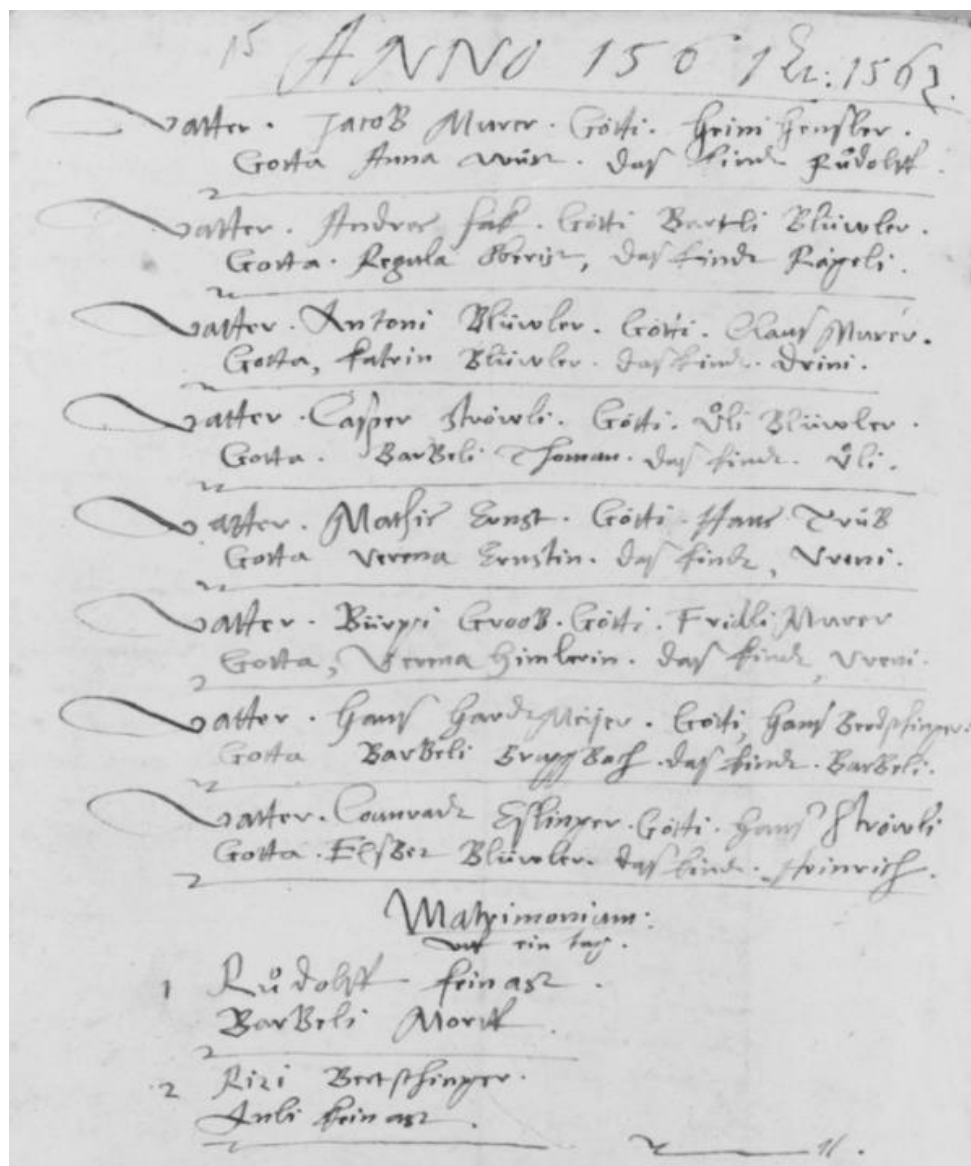 15 ANNO 1561 Et: 1562.
Vatter. Jacob Murer. Götti. Heini Hensler.
Gotta Anna Wüst. das kindt Růdolff.
Vatter. Andres fak. Götti Bartli Blüwler.
Gotta. Regula Oberist, das kindt Rägeli.
Vatter. Antoni Blüwler. Götti. Claus Murer.
Gotta, Katrin Blüwler. das kindt. Drini.
Vatter. Casper Ströwli. Götti. Ůli Blüwler.
Gotta. Barbeli Thoman. das kindt. Ůli.
Vatter. Mathis Ernst. Götti. Hans Trüb
Gotta Verena Ernstin. das kindt, Vreni.
Vatter. Bürgi Groob. Götti. Fridli Murer
Gotta, Verena Himlerin. das kindt, Vreni.
Vatter. Hans Hardtmeijer. Götti, Hans Bertschinger.
Gotta Barbeli Bruppbach. das kindt. Barbeli.
Vatter. Counradt Eslinger. Götti. Hans Ströwli
Gotta. Elsbet Blüwler. das kindt. Heinrich.
Matrimonium:
uff ein tag.
1 Růdolff feinast.
Barbeli Morff
2 Rizi Bertschinger.
Anli feinast.